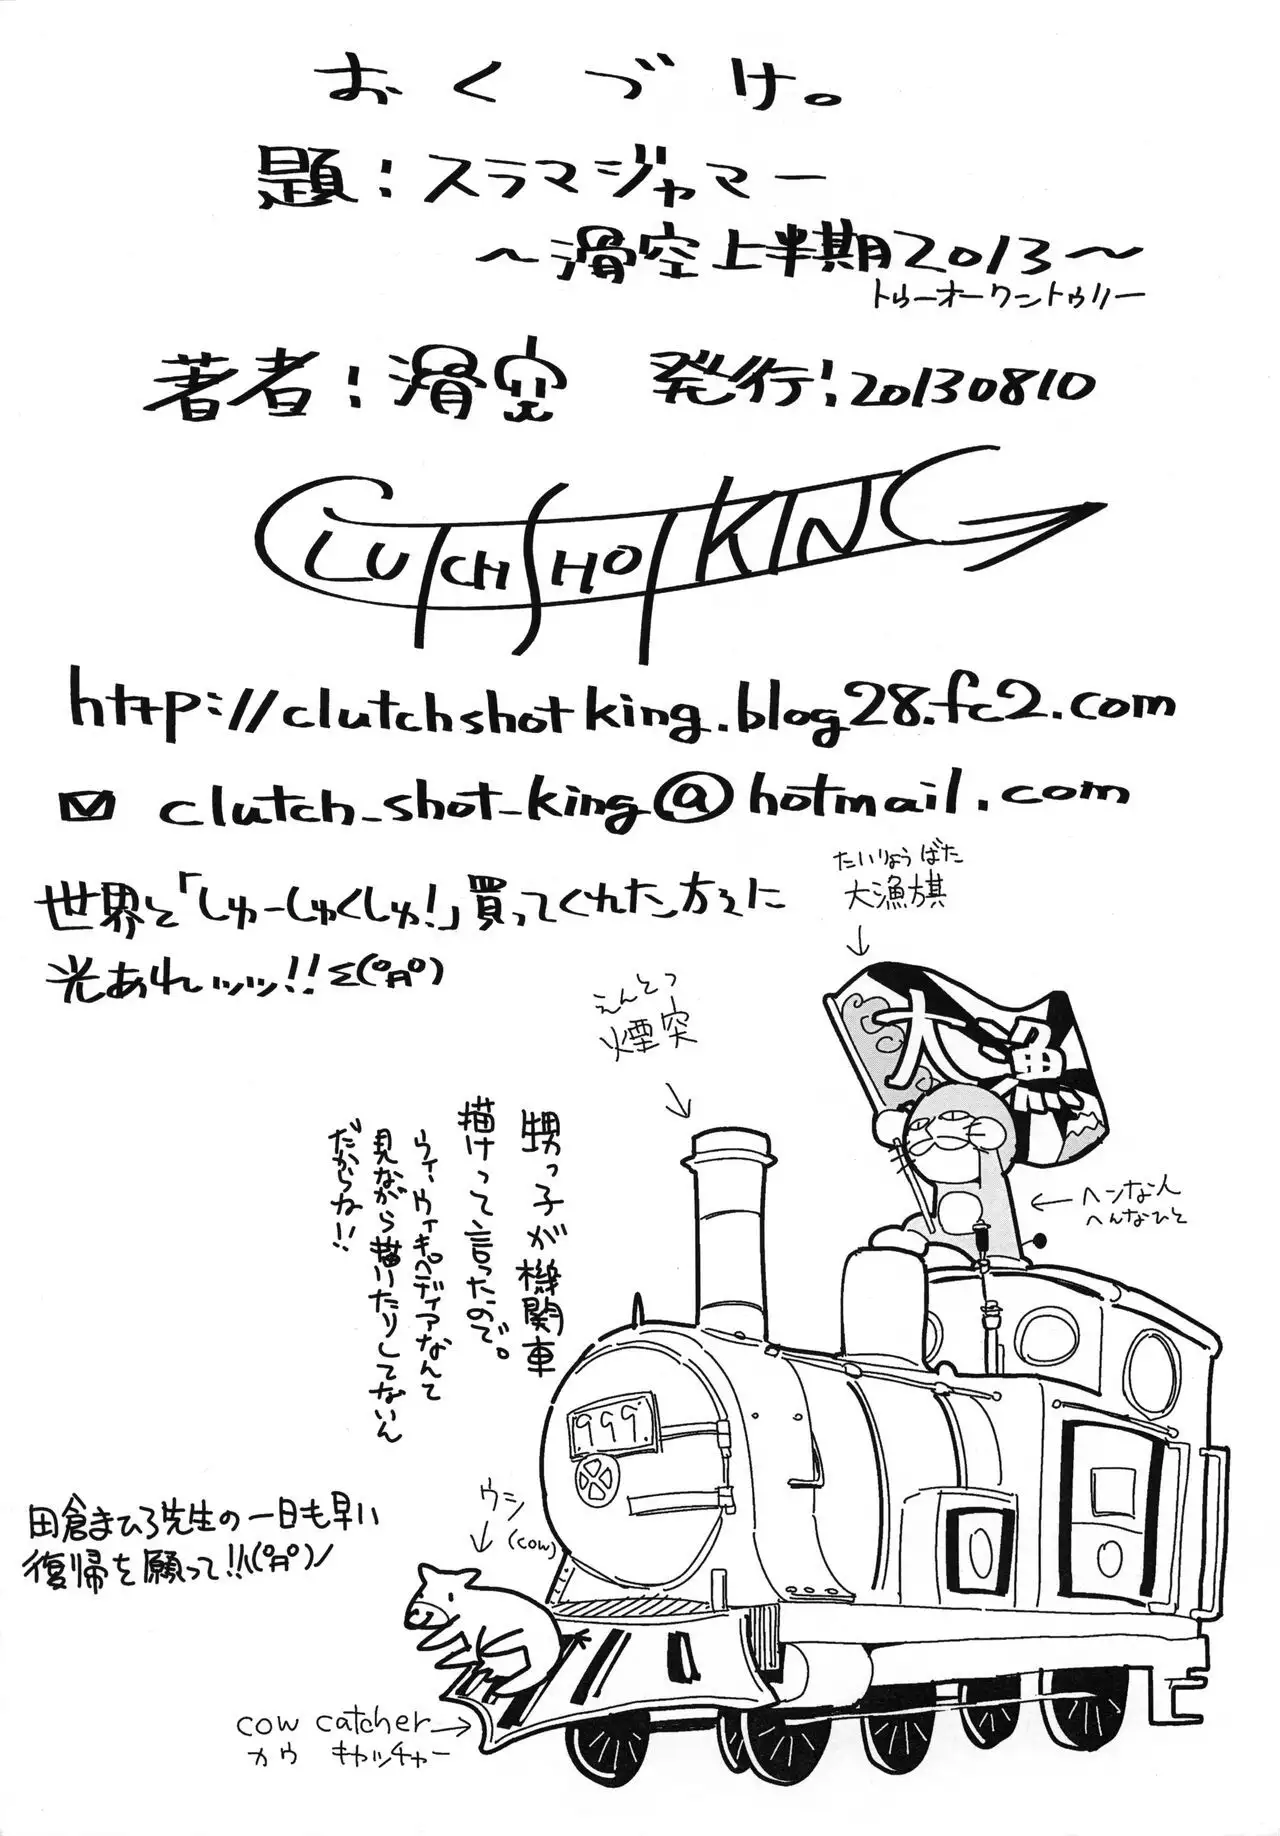 おくづけ。
題:スラマジャマー
~滑空上半期2013~
トゥーオーワントゥリー
著者:滑空 発行:20130810
CLUTCH SHOT KING
http://clutchshotking.blog28.fc2.com
clutch_shot_king@hotmail.com
世界と「しゅーしゅくしゅ!」買ってくれた方々に
光あれッッッ!!Σ(゚Д゚)
たいりょうばた
大漁旗
大漁
えんとつ
煙突
甥っ子が機関車
描けって言ったので。
ウィ、ウィキペディアなんて
見ながら描いたりしてないん
だからね!!
ヘンな人
へんなひと
999.
田倉まひろ先生の一日も早い
復帰を願って!!(゚Д゚)ノ
ウシ
(cow)
cow catcher
カウ キャッチャー